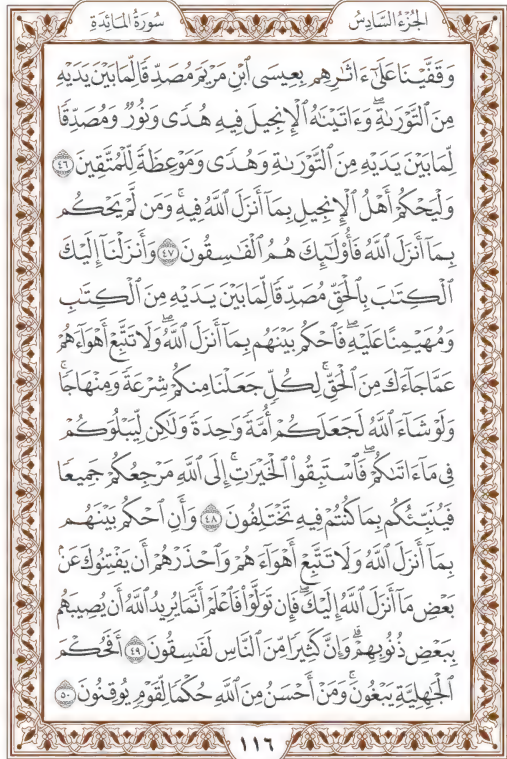 سُورَةُ المَائِدَةِ
الجُزْءُ السَّادِسُ
وَقَفَّيْنَا عَلَىٰٓ ءَاثَٰرِهِم بِعِيسَى ٱبْنِ مَرْيَمَ مُصَدِّقًا لِّمَا بَيْنَ يَدَيْهِ
مِنَ ٱلتَّوْرَىٰةِۖ وَءَاتَيْنَٰهُ ٱلْإِنجِيلَ فِيهِ هُدًى وَنُورٌ وَمُصَدِّقًا
لِّمَا بَيْنَ يَدَيْهِ مِنَ ٱلتَّوْرَىٰةِ وَهُدًى وَمَوْعِظَةً لِّلْمُتَّقِينَ ٤٦
وَلْيَحْكُمْ أَهْلُ ٱلْإِنجِيلِ بِمَآ أَنزَلَ ٱللَّهُ فِيهِۚ وَمَن لَّمْ يَحْكُم
بِمَآ أَنزَلَ ٱللَّهُ فَأُوْلَٰٓئِكَ هُمُ ٱلْفَٰسِقُونَ ٤٧ وَأَنزَلْنَآ إِلَيْكَ
ٱلْكِتَٰبَ بِٱلْحَقِّ مُصَدِّقًا لِّمَا بَيْنَ يَدَيْهِ مِنَ ٱلْكِتَٰبِ
وَمُهَيْمِنًا عَلَيْهِۖ فَٱحْكُم بَيْنَهُم بِمَآ أَنزَلَ ٱللَّهُۖ وَلَا تَتَّبِعْ أَهْوَآءَهُمْ
عَمَّا جَآءَكَ مِنَ ٱلْحَقِّۚ لِكُلٍّ جَعَلْنَا مِنكُمْ شِرْعَةً وَمِنْهَاجًاۚ
وَلَوْ شَآءَ ٱللَّهُ لَجَعَلَكُمْ أُمَّةً وَٰحِدَةً وَلَٰكِن لِّيَبْلُوَكُمْ
فِي مَآ ءَاتَىٰكُمْۖ فَٱسْتَبِقُوا۟ ٱلْخَيْرَٰتِۚ إِلَى ٱللَّهِ مَرْجِعُكُمْ جَمِيعًا
فَيُنَبِّئُكُم بِمَا كُنتُمْ فِيهِ تَخْتَلِفُونَ ٤٨ وَأَنِ ٱحْكُم بَيْنَهُم
بِمَآ أَنزَلَ ٱللَّهُ وَلَا تَتَّبِعْ أَهْوَآءَهُمْ وَٱحْذَرْهُمْ أَن يَفْتِنُوكَ عَنۢ
بَعْضِ مَآ أَنزَلَ ٱللَّهُ إِلَيْكَۖ فَإِن تَوَلَّوْا۟ فَٱعْلَمْ أَنَّمَا يُرِيدُ ٱللَّهُ أَن يُصِيبَهُم
بِبَعْضِ ذُنُوبِهِمْۗ وَإِنَّ كَثِيرًا مِّنَ ٱلنَّاسِ لَفَٰسِقُونَ ٤٩ أَفَحُكْمَ
ٱلْجَٰهِلِيَّةِ يَبْغُونَۚ وَمَنْ أَحْسَنُ مِنَ ٱللَّهِ حُكْمًا لِّقَوْمٍ يُوقِنُونَ ٥٠
١١٦